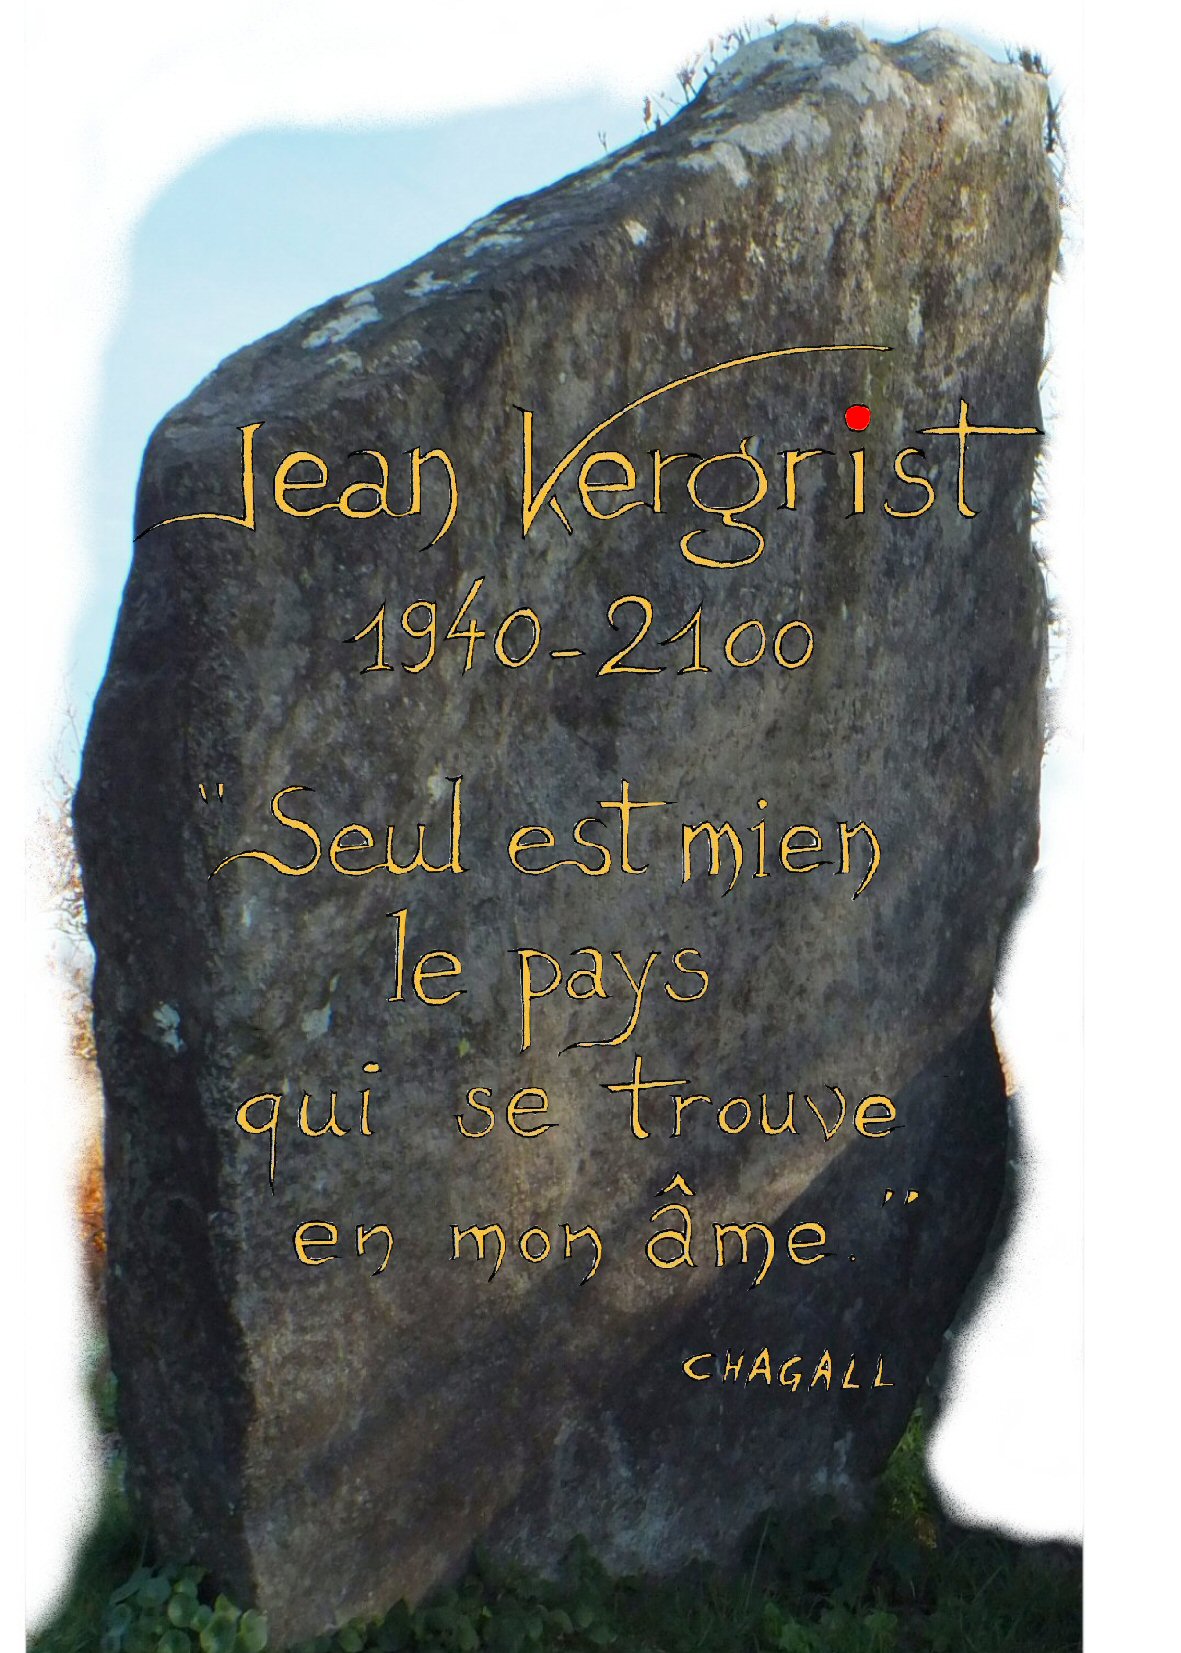 Jean Kergrist
1940-2100
"Seul est mien
le pays
qui se trouve
en mon âme."
CHAGALL